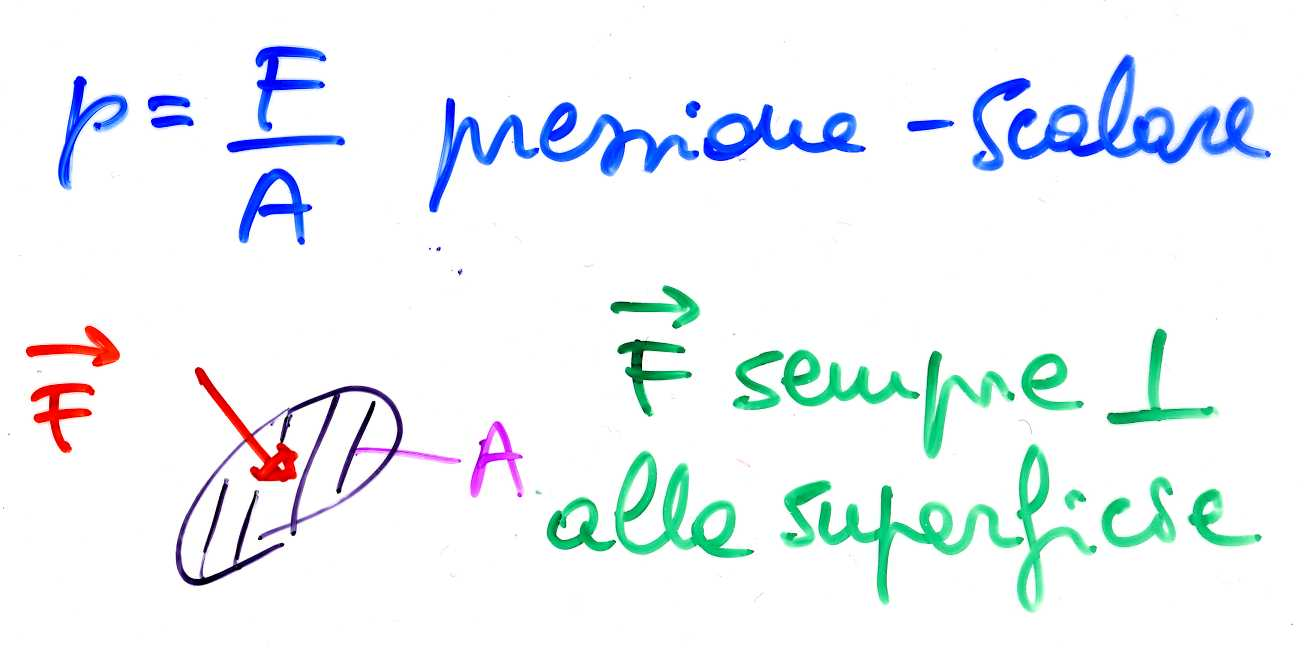 p = F/A pressione - scalare
F⃗
A
F⃗ sempre ⊥
alla superficie